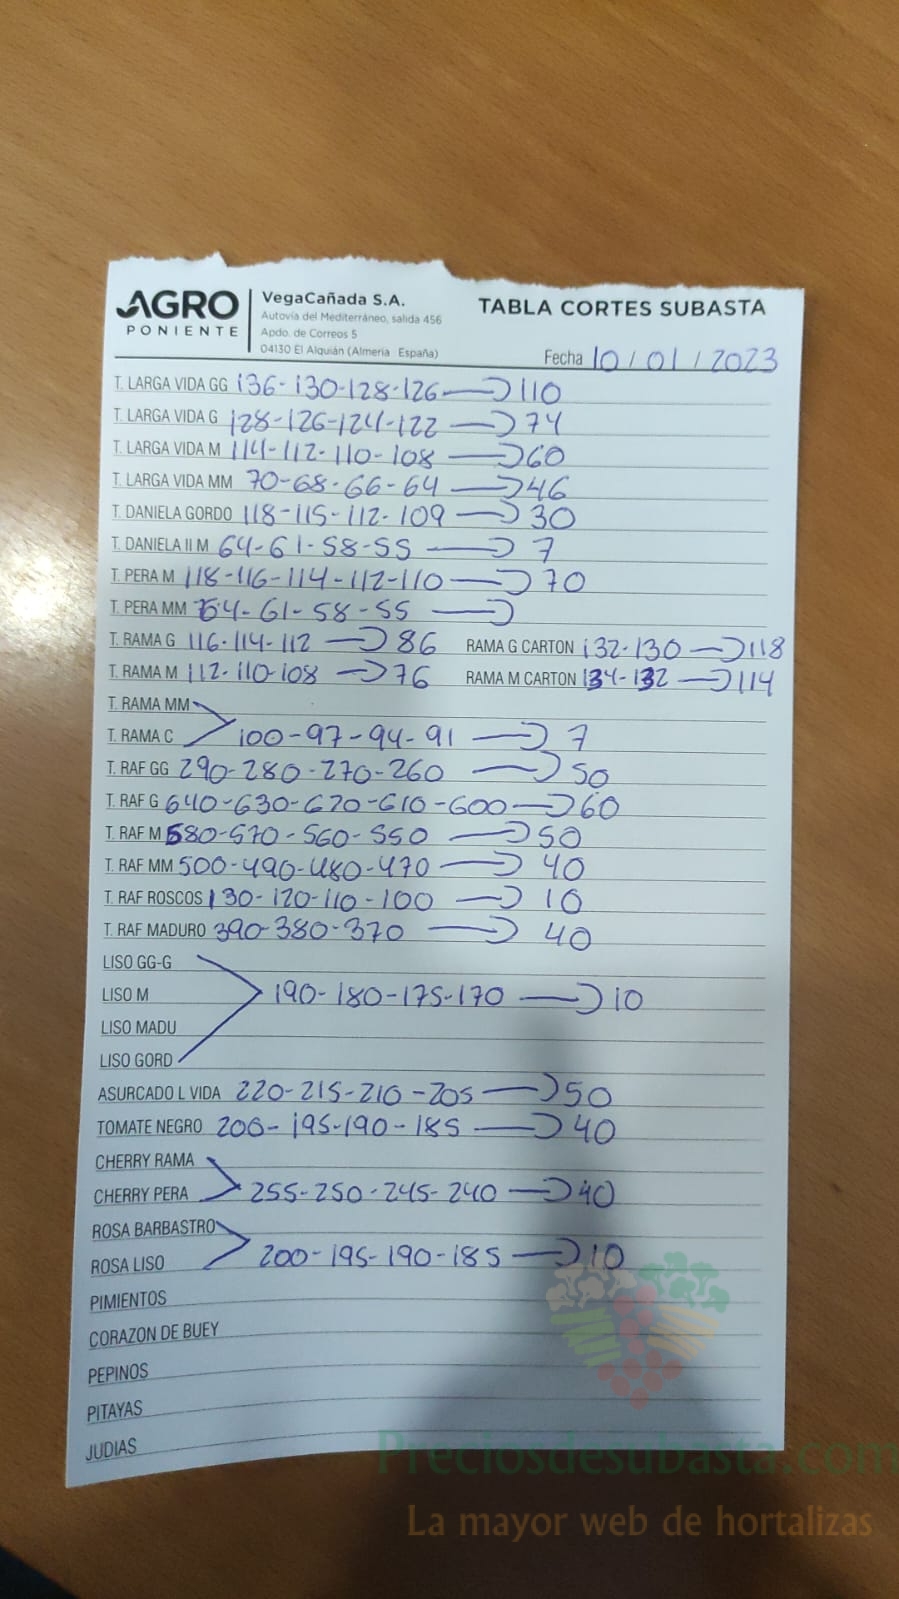 AGRO
PONIENTE
VegaCañada S.A.
Autovía del Mediterráneo, salida 456
Apdo. de Correos 5
04130 El Alquián (Almería España)
TABLA CORTES SUBASTA
Fecha 10/01/2023
T. LARGA VIDA GG 136-130-128-126 110
T. LARGA VIDA G 128-126-124-122 74
T. LARGA VIDA M 114-112-110-108 60
T. LARGA VIDA MM 70-68-66-64 46
T. DANIELA GORDO 118-115-112-109 30
T. DANIELA II M 64-61-58-55 7
T. PERA M 118-116-114-112-110 70
T. PERA MM 64-61-58-55
T. RAMA G 116-114-112 86 RAMA G CARTON 132-130 118
T. RAMA M 112-110-108 76 RAMA M CARTON 134-132 114
T. RAMA MM
T. RAMA C 100-97-94-91 7
T. RAF GG 290-280-270-260 50
T. RAF G 640-630-620-610-600 60
T. RAF M 580-570-560-550 50
T. RAF MM 500-490-480-470 40
T. RAF ROSCOS 130-120-110-100 10
T. RAF MADURO 390-380-370 40
LISO GG-G
LISO M 190-180-175-170 10
LISO MADU
LISO GORD
ASURCADO L VIDA 220-215-210-205 50
TOMATE NEGRO 200-195-190-185 40
CHERRY RAMA
CHERRY PERA 255-250-245-240 40
ROSA BARBASTRO
ROSA LISO 200-195-190-185 10
PIMIENTOS
CORAZON DE BUEY
PEPINOS
PITAYAS
JUDIAS
Preciosdesubasta.com
La mayor web de hortalizas